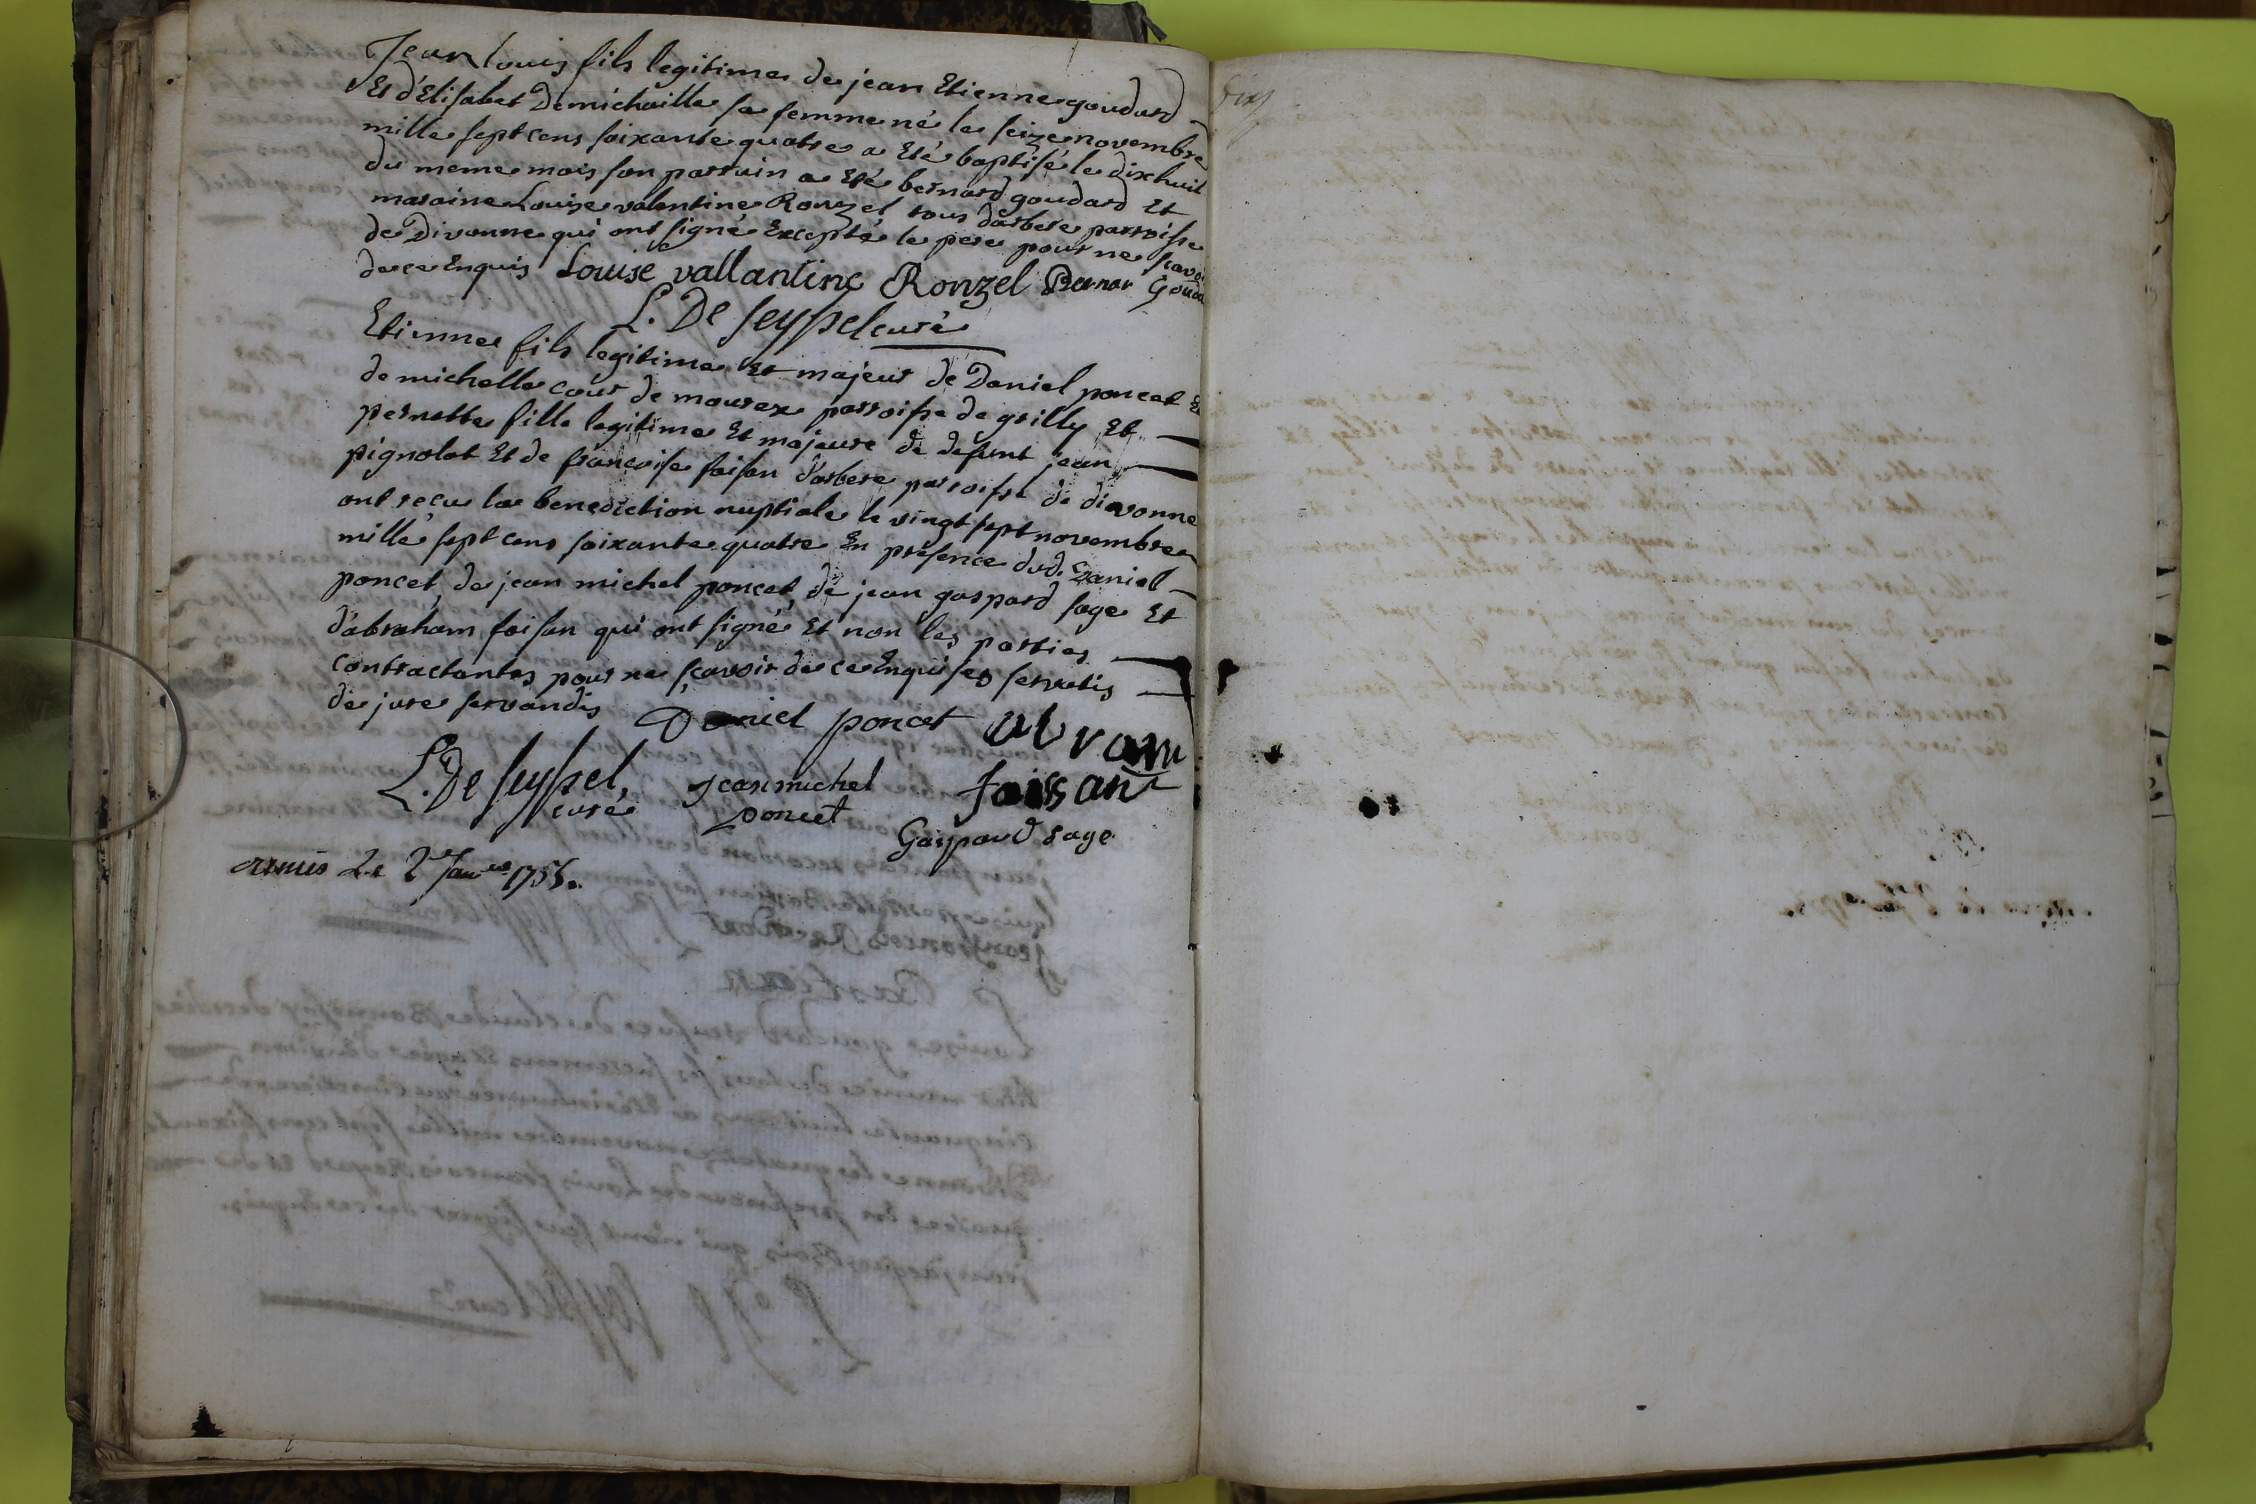 Jean Louis fils legitime de jean Etienne goudard
Et d'Elisabet Demichaille sa femme né le seize novembre
mille sept cens soixante quatre a eté baptisé le dixhuit
du meme mois son parrain a eté bernard goudard et
maraine Louise valentine Ronzel tous d'arbere parroisse
de Divonne qui ont signé Excepté le pere pour ne scavoi
de ce Enquis Louise vallantine Ronzel Bernar Gouda
L. De seyssel curé
Etienne fils legitime Et majeur de Daniel poncet Et
de michelle cour de mourex parroisse de grilly Et
pernette fille legitime Et majeure de defunt jean
pignolat Et de francoise foisan d'arbere parroisse de divonne
ont recu la benediction nuptiale le vingt sept novembre
mille sept cens soixante quatre En presence dud. Daniel
poncet, de jean michel poncet, de jean gaspard sage Et
d'abraham foisan qui ont signé Et non les parties
contractantes pour ne sçavoir de ce Enquises servatis
de jure servandis Daniel poncet abram
L. De seyssel, jean michel foissan
curé poncet
Gaspard sage
Le 2